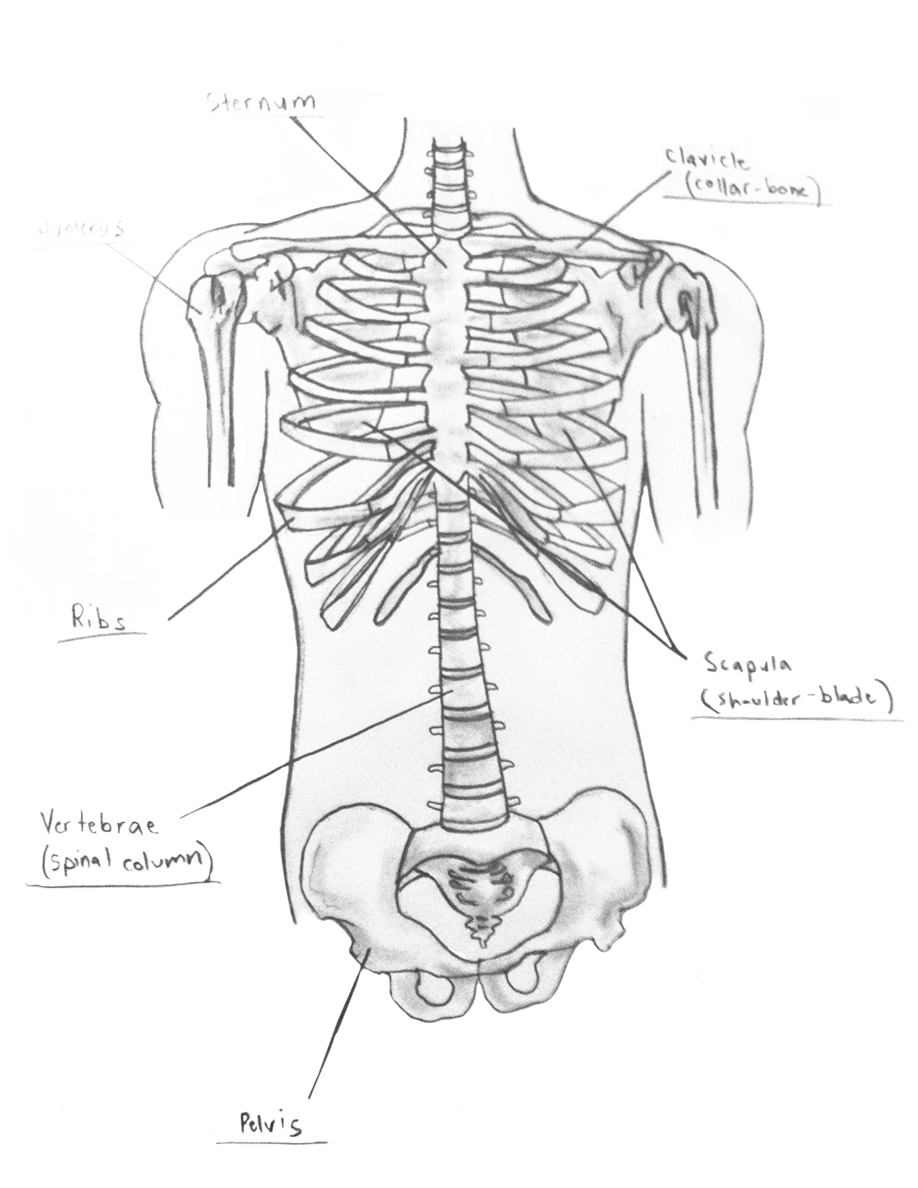 Sternum
Clavicle
(collar-bone)
Humerus
Ribs
Scapula
(shoulder-blade)
Vertebrae
(spinal column)
Pelvis